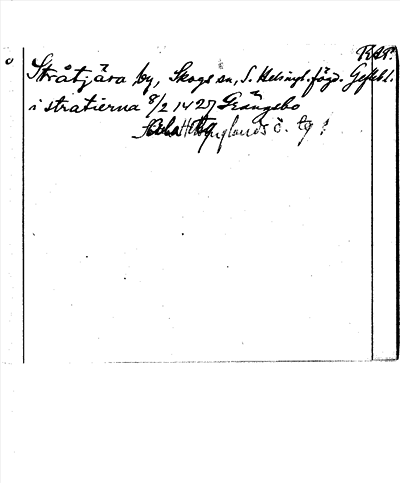 RAP.
Stråtjära by, Skogs sn, S. Helsingl. fögd. Geflebl.
i stratierna 8/2 1427 Grängebo
Helsinglands ö. tg!